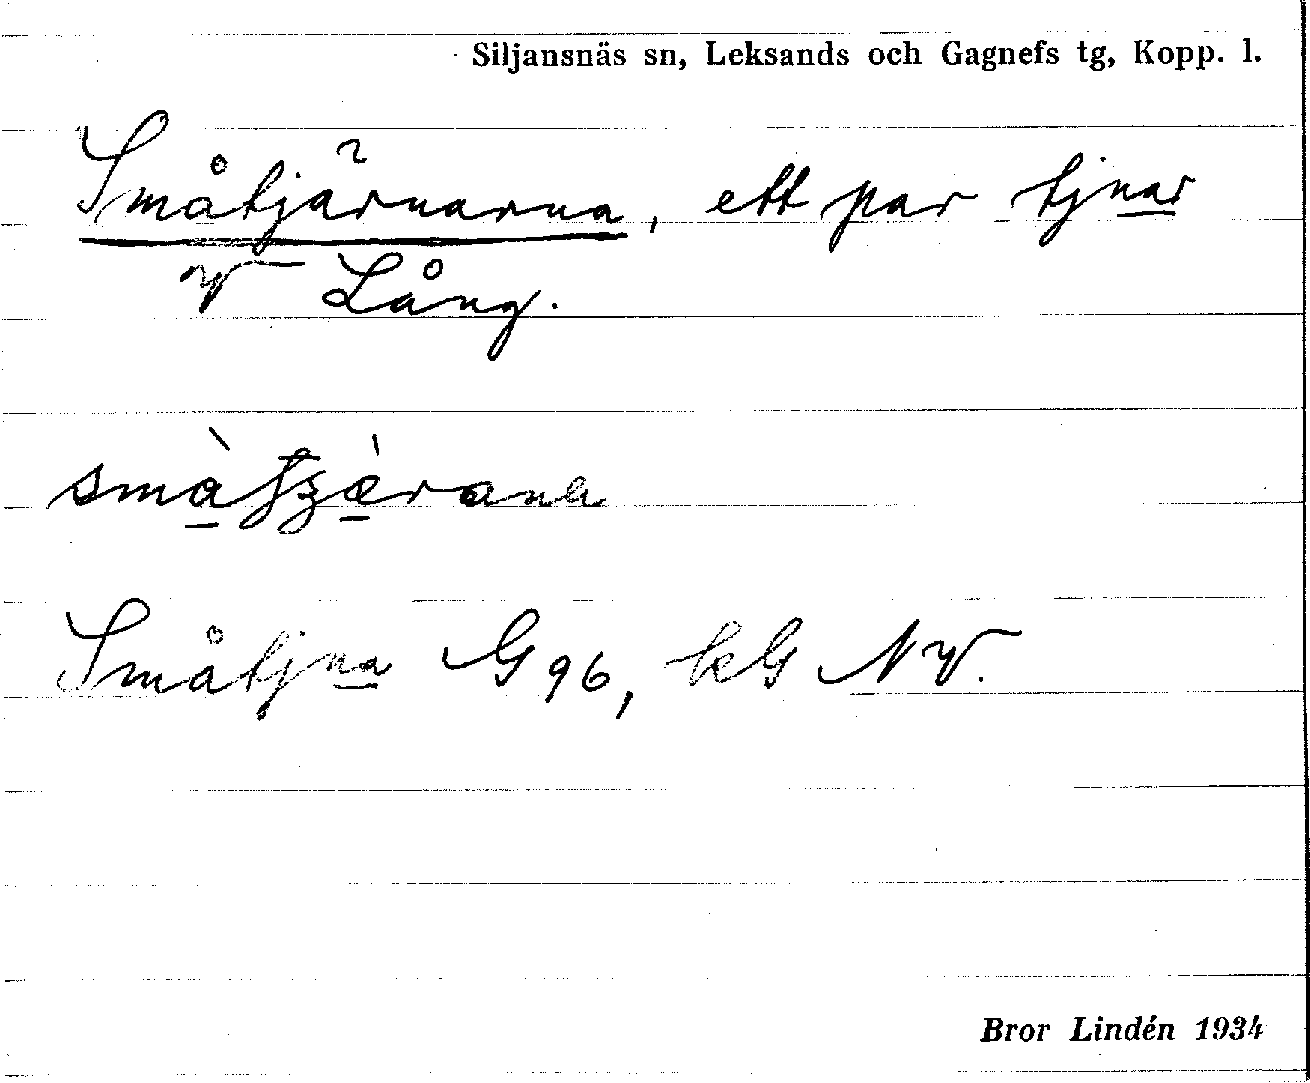 Siljansnäs sn, Leksands och Gagnefs tg, Kopp. l.
Småtjärnarna, ett par tjnar
V Lång.
Småtjna G 96, kG NV.
Bror Lindén 1934